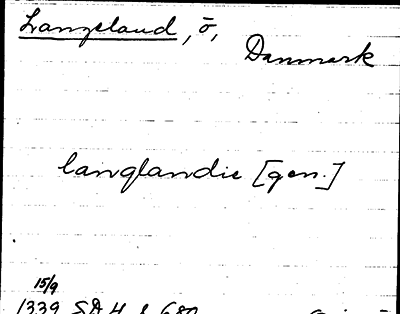 Langeland, ö,
Danmark
langlandie [gen.]
15/9
1339 SD 4 s 680